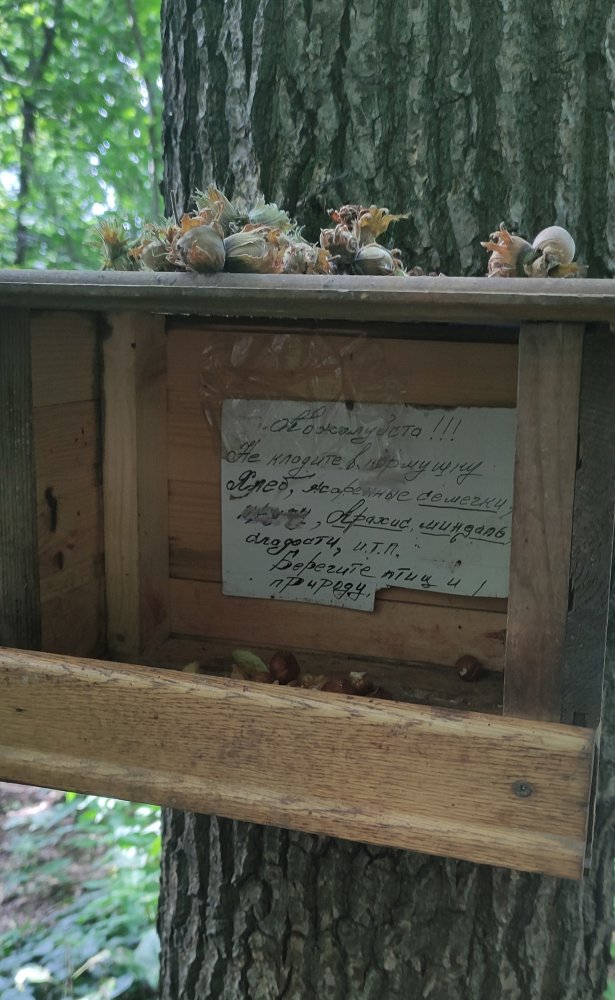 Пожалуйста!!!
Не кладите в кормушку
Хлеб, жаренные семечки,
, Арахис, миндаль
сладости, и.т.п.
Берегите птиц и
природу!